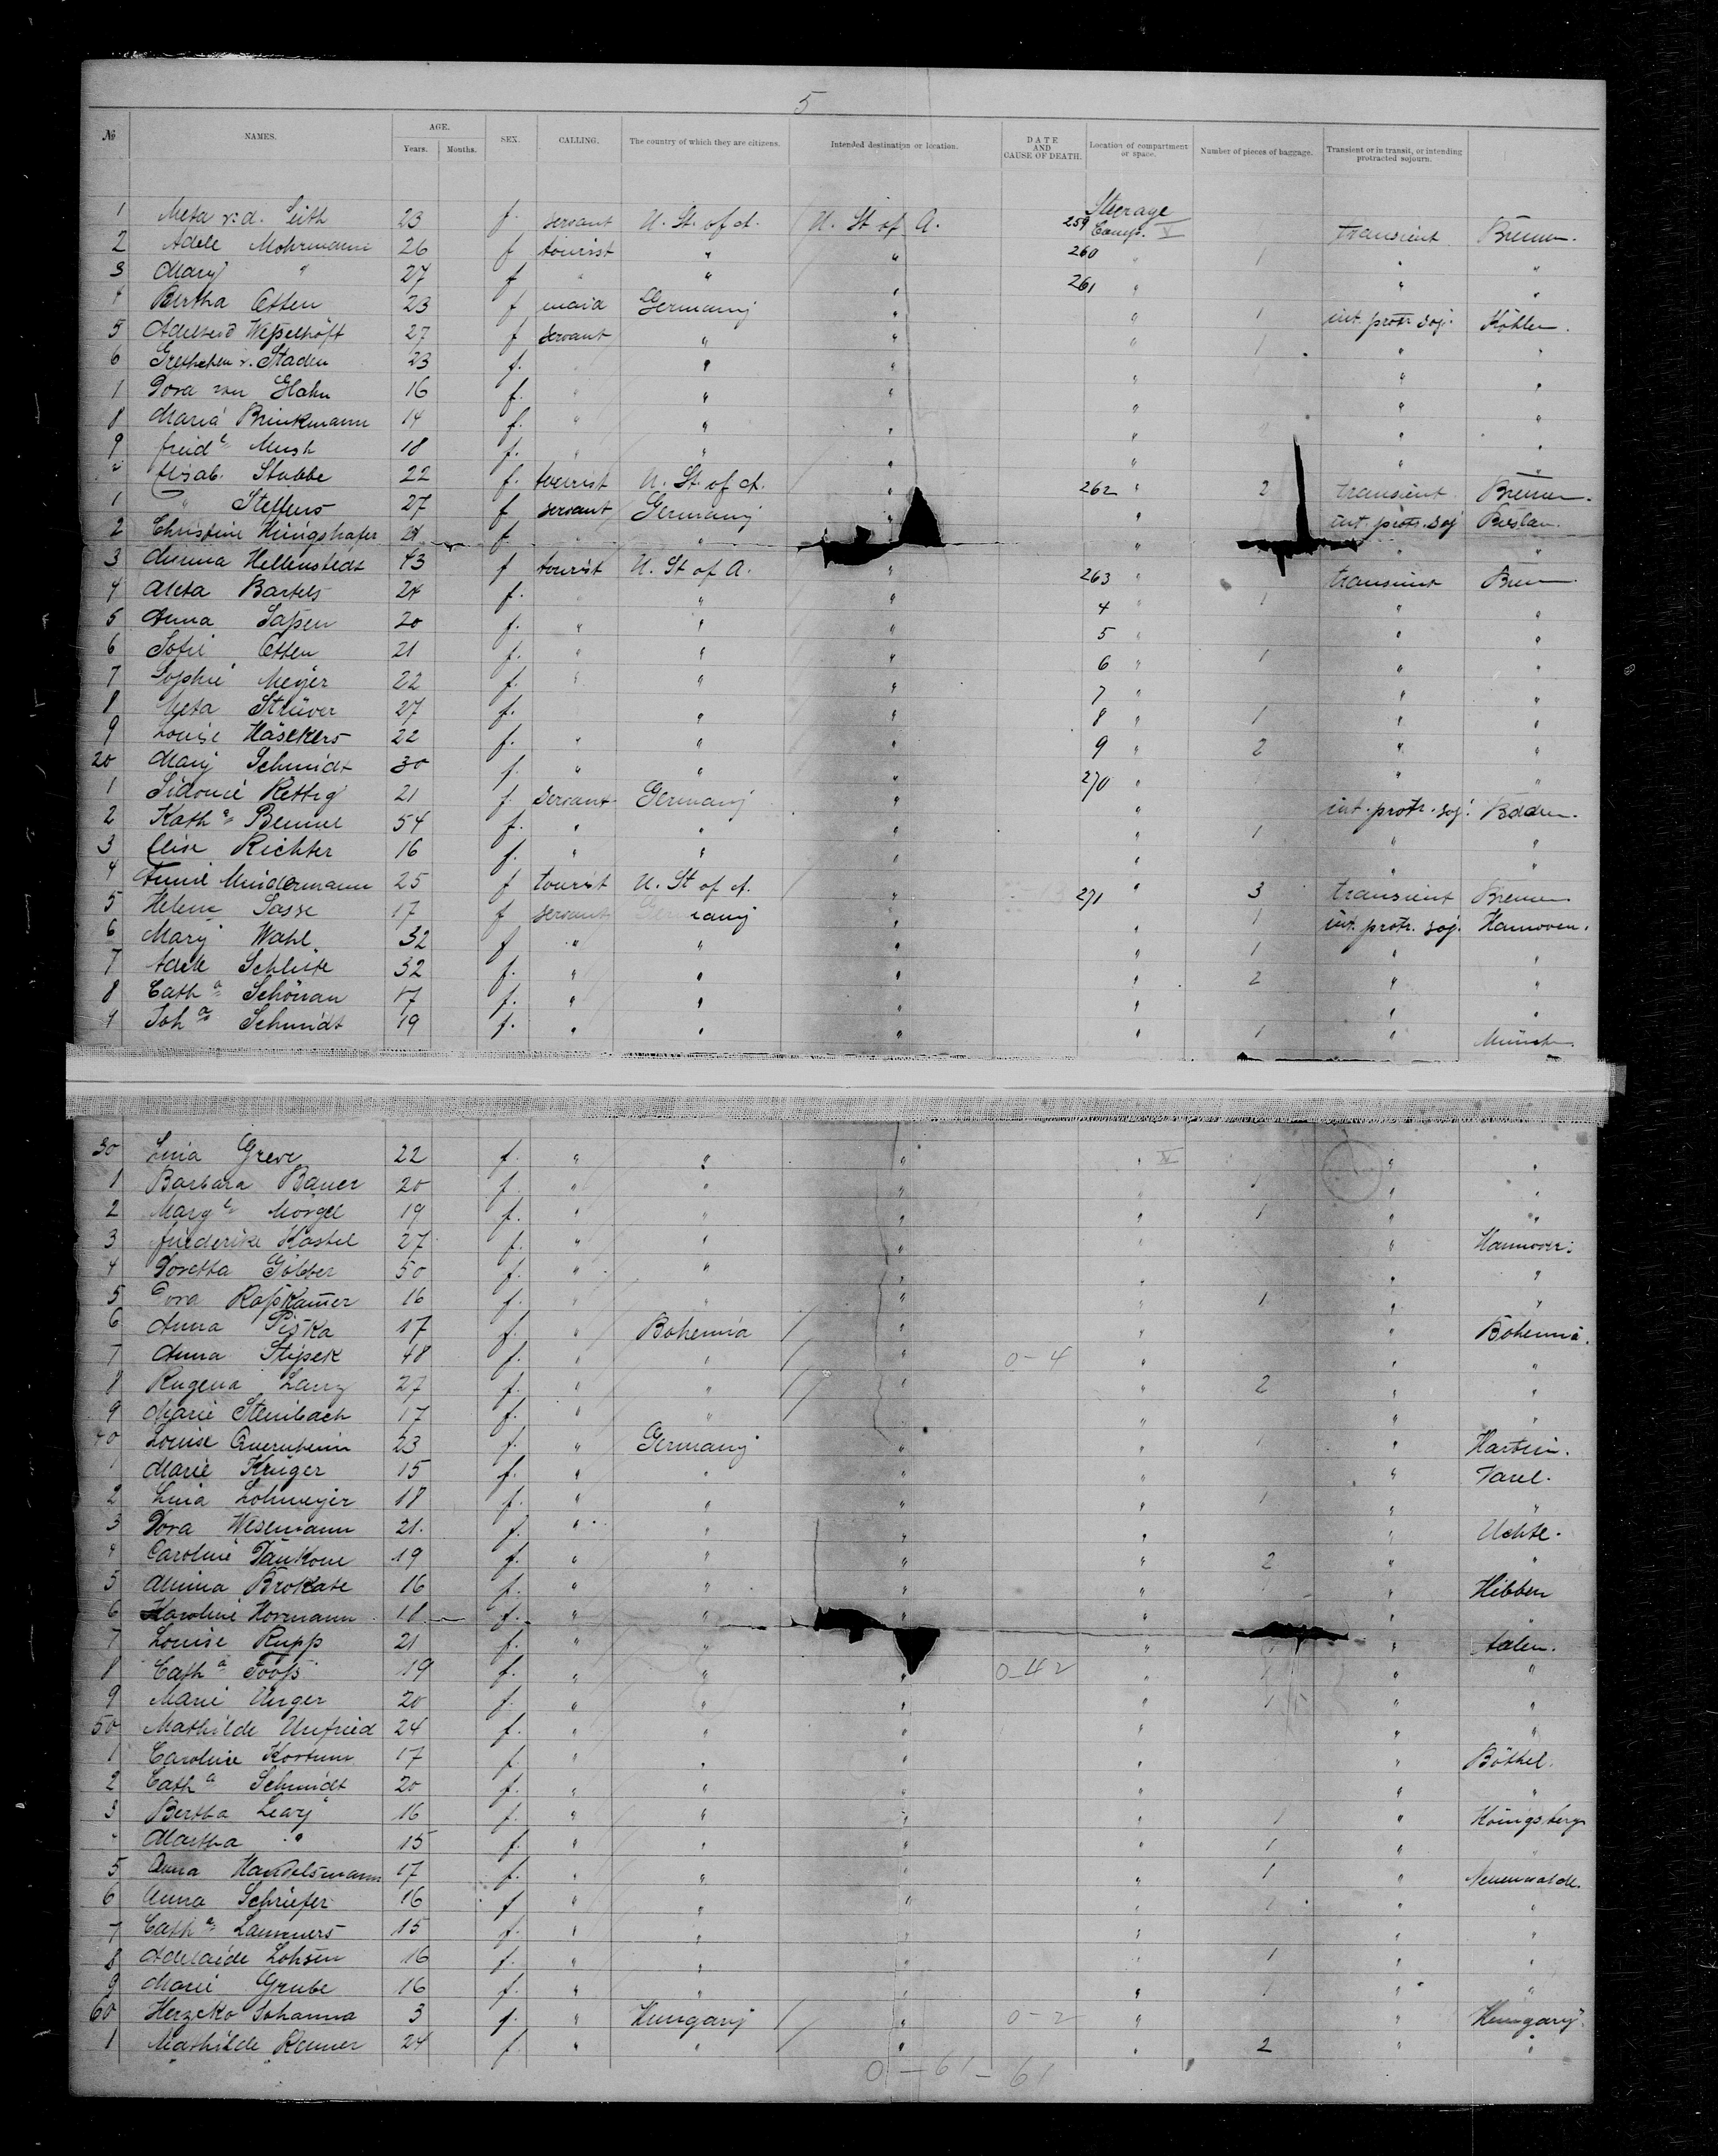 5
№ NAMES. AGE. Years. Months. SEX. CALLING. The country of which they are citizens. Intended destination or location. DATE AND CAUSE OF DEATH. Location of compartment or space. Number of pieces of baggage. Transient or in transit, or intending protracted sojourn.
Steerage
1 Meta v. d. Lieth 23 f. servant U. St. of A. U. St of A. 259 Comp. V transient Bremen.
2 Adele Mohrmann 26 f tourist " " 260 " 1 " "
3 Mary " 27 f " " " 261 " " "
4 Bertha Otten 23 f maid Germany " " 1 int. protr. soj. Köhlen.
5 Adelheid Weßelhöft 27 f servant " " " 1 " "
6 Grethchen v. Staden 23 f. " " " " " "
7 Dora von Glahn 16 f. " " " " " "
8 Maria Brinkmann 14 f. " " " " " "
9 Mush 18 f. " " " " " "
" Elisab. Stubbe 22 f. tourist U. St. of A. " 262 " 2 transient Bremen.
1 " Steffens 27 f servant Germany " " int. protr. soj Breslau.
2 Christine 21 f. " " " " "
3 Hellenstedt 43 f tourist U. St of A. " 263 " transient Brem
4 Meta Bartels 24 f. " " " 4 " 1 " "
5 Anna Saßen 20 f. " " " 5 " " "
6 Sofie Otten 21 f. " " " 6 " 1 " "
7 Sophie Meyer 22 f. " " " 7 " " "
8 Meta Strüver 27 f. " " 8 " 1 " "
9 Louise Häsekers 22 f. " " " 9 " 2 " "
20 Mary Schmidt 30 f. " " " 270 " " "
1 Sidonie Rettig 21 f. servant Germany " " int. protr. soj.
2 Kath a 54 f. " " " " 1 " "
3 Elise Richter 16 f. " " " " " "
4 Mindermann 25 f tourist U. St of A. " 271 " 3 transient Bremen
5 Helene Sasse 17 f servant Germany " " 1 int. protr. soj. Hannover.
6 Mary Wahl 32 f " " " " 1 " "
7 Adele 32 f. " " " " 2 " "
8 Cath a Schönau 17 f. " " " " " "
9 Joh a Schmidt 19 f. " " " " 1 " Münch
30 Lina Greve 22 f. " " " " V " "
1 Barbara Bauer 20 f. " " " " 1 " "
2 Morgel 19 f. " " " " 1 " "
3 Friederike Kastel 27 f. " " " " " Hannover.
4 50 f. " " " " " "
5 Dora Roßkamer 16 f. " " " " 1 " "
6 Anna Piska 17 f. " Bohemia " " " Bohemia.
7 Anna Stipek 48 f. " " " 0-4 " " "
8 Rugena Lang 27 f. " " " " 2 " "
9 Marie Steinbach 17 f. " " " " "
40 Louise Quernheim 23 f. " Germany " " 1 "
1 Marie Krüger 15 f. " " " " " Varel.
2 Lina Lohmeyer 18 f. " " " " 1 " "
3 Dora Wesemann 21. f. " " " " " Uchte.
4 Caroline 19 f. " " " " 2 " "
5 Brokate 16 f. " " " " 1 " Hibben
6 Karoline Hormann 18 f. " " " " " "
7 Louise Rupp 21 f. " " " " " Aalen.
8 Cath a 19 f. " " " 0-42 " " "
9 Marie Unger 20 f. " " " " 1 " "
50 Mathilde Unfried 24 f. " " " " " "
1 Caroline Kortum 17 f " " " " " Böthel.
2 Cath a Schmidt 20 f. " " " " " "
3 Bertha Levy 16 f. " " " " 1 " Königsberg
" Martha " 15 f " " " " 1 " "
5 Anna Handelsmann 17 f. " " " " 1 " Neuenwalde.
6 Anna Schriefer 16 f " " " " 1 " "
7 Cath a Lammers 15 f. " " " " " "
8 Adelaide Lohsen 16 f. " " " " 1 " "
9 Marie Grube 16 f. " " " " 1 " "
60 Herzeko Johanna 3 f. " Hungary " 0-2 " " Hungary.
1 Mathilde 24 f. " " " " 2 " "
0-61-61